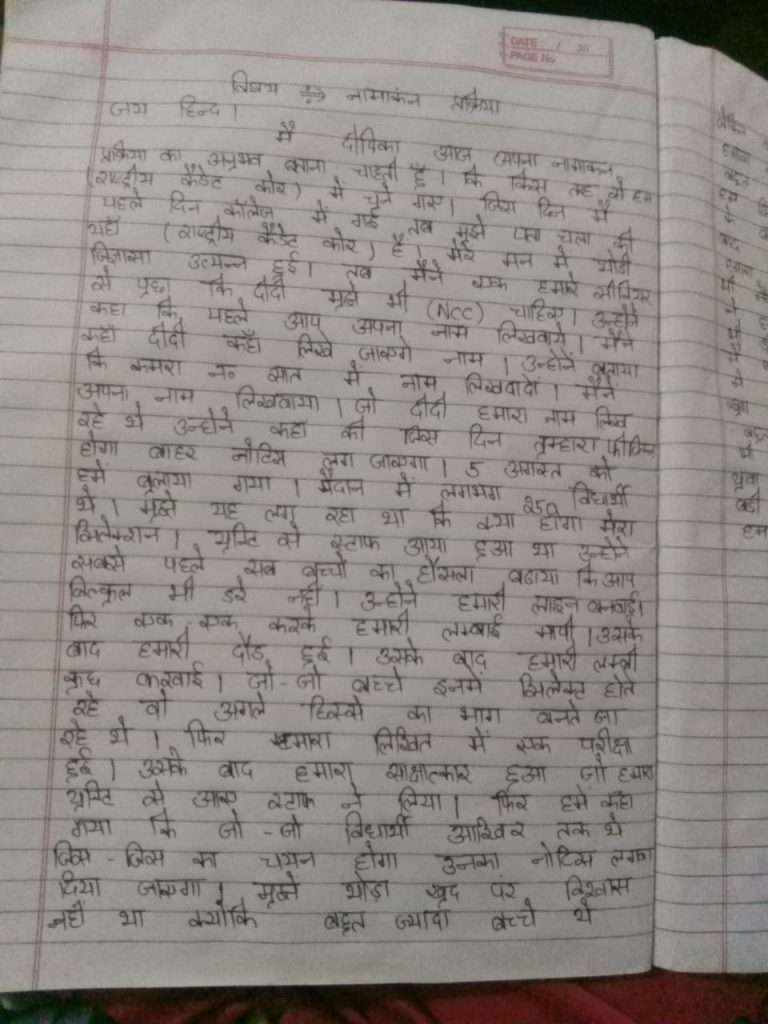 DATE: / 20
PAGE No
विषय ⇒ नामाकंन प्रक्रिया
जय हिन्द।
मैं दीपिका आज अपना नामाकन
प्रक्रिया का अनुभव बताना चाहती हूँ। कि किस तरह से हम
(राष्ट्रीय कैडेट कोर) में चुने गए। जिस दिन मैं
पहले दिन कॉलेज में गई तब मुझे पता चला की
यहाँ (राष्ट्रीय कैडेट कोर) है। मेरे मन में थोडी
जिज्ञासा उत्पन्न हुई। तब मैंने एक हमारे सीनियर
से पूछा कि दीदी मुझे भी (NCC) चाहिए। उन्होंने
कहा कि पहले आप अपना नाम लिखवाये। मैंने
कहाँ दीदी कहाँ लिखे जाएगे नाम। उन्होनें बताया
कि कमरा न० सात में नाम लिखवादो। मैंने
अपना नाम लिखवाया। जो दीदी हमारा नाम लिख
रहे थे उन्होंने कहाँ की जिस दिन तुम्हारा फीजिकल
होगा बाहर नोटिस लग जाएगा। 5 अगस्त को
हमें बुलाया गया। मैदान में लगभग 250 विधार्थी
थे। मुझे यह लग रहा था कि क्या होगा मेरा
सिलेक्शन। यूनिट से स्टाफ आया हुआ था उन्होंने
सबसे पहले सब बच्चों का हौसला बढाया कि आप
बिल्कुल भी डरे नहीं। उन्होंने हमारी लाइन बनवाई।
फिर एक-एक करके हमारी लम्बाई मापी। उसके
बाद हमारी दौड़ हुई। उसके बाद हमारी लम्बी
कुद करवाई। जो-जो बच्चे इनमें सिलेक्ट होते
रहे वो अगले हिस्से का भाग बनते जा
रहे थे। फिर हमारा लिखित में एक परीक्षा
हुई। उसके बाद हमारा साक्षात्कार हुआ जो हमारा
यूनिट से आए स्टाफ ने लिया। फिर हमें कहाँ
गया कि जो-जो विधार्थी आखिर तक थे
जिस-जिस का चयन होगा उनका नोटिस लगवा
दिया जाएगा। मुझे थोड़ा खुद पर विश्वास
नहीं था क्योंकि बहुत ज्यादा बच्चे थे